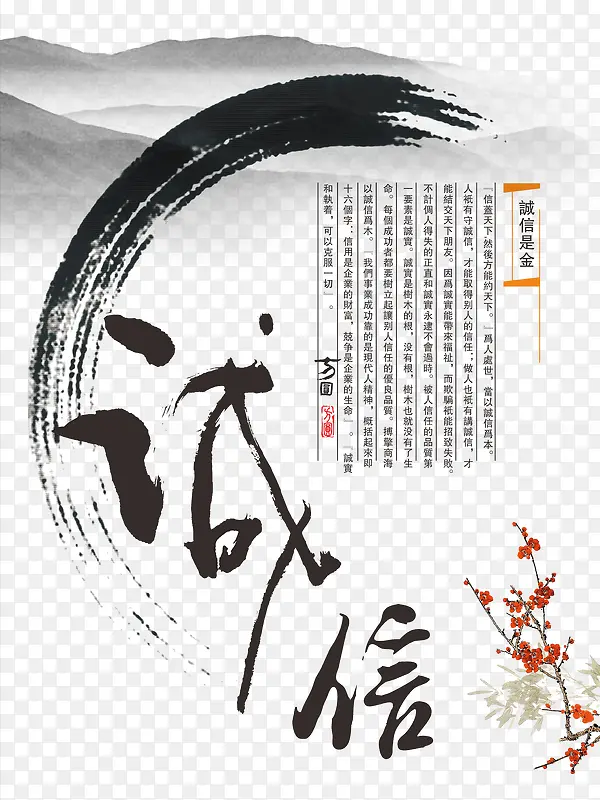 誠信是金
『信蓋天下,然後方能約天下。』爲人處世，當以誠信爲本。
人衹有守誠信，才能取得别人的信任；做人也衹有講誠信，才
能結交天下朋友。因爲誠實能帶來福祉，而欺騙衹能招致失敗。
不計個人得失的正直和誠實永遠不會過時。被人信任的品質第
一要素是誠實。誠實是樹木的根，没有根，樹木也就没有了生
命。每個成功者都要樹立起讓别人信任的優良品質。搏擎商海
以誠信爲木。『我們事業成功靠的是現代人精神，概括起來即
十六個字：信用是企業的財富，競争是企業的生命』。『誠實
和執着，可以克服一切』。
方圓
方圓
誠信